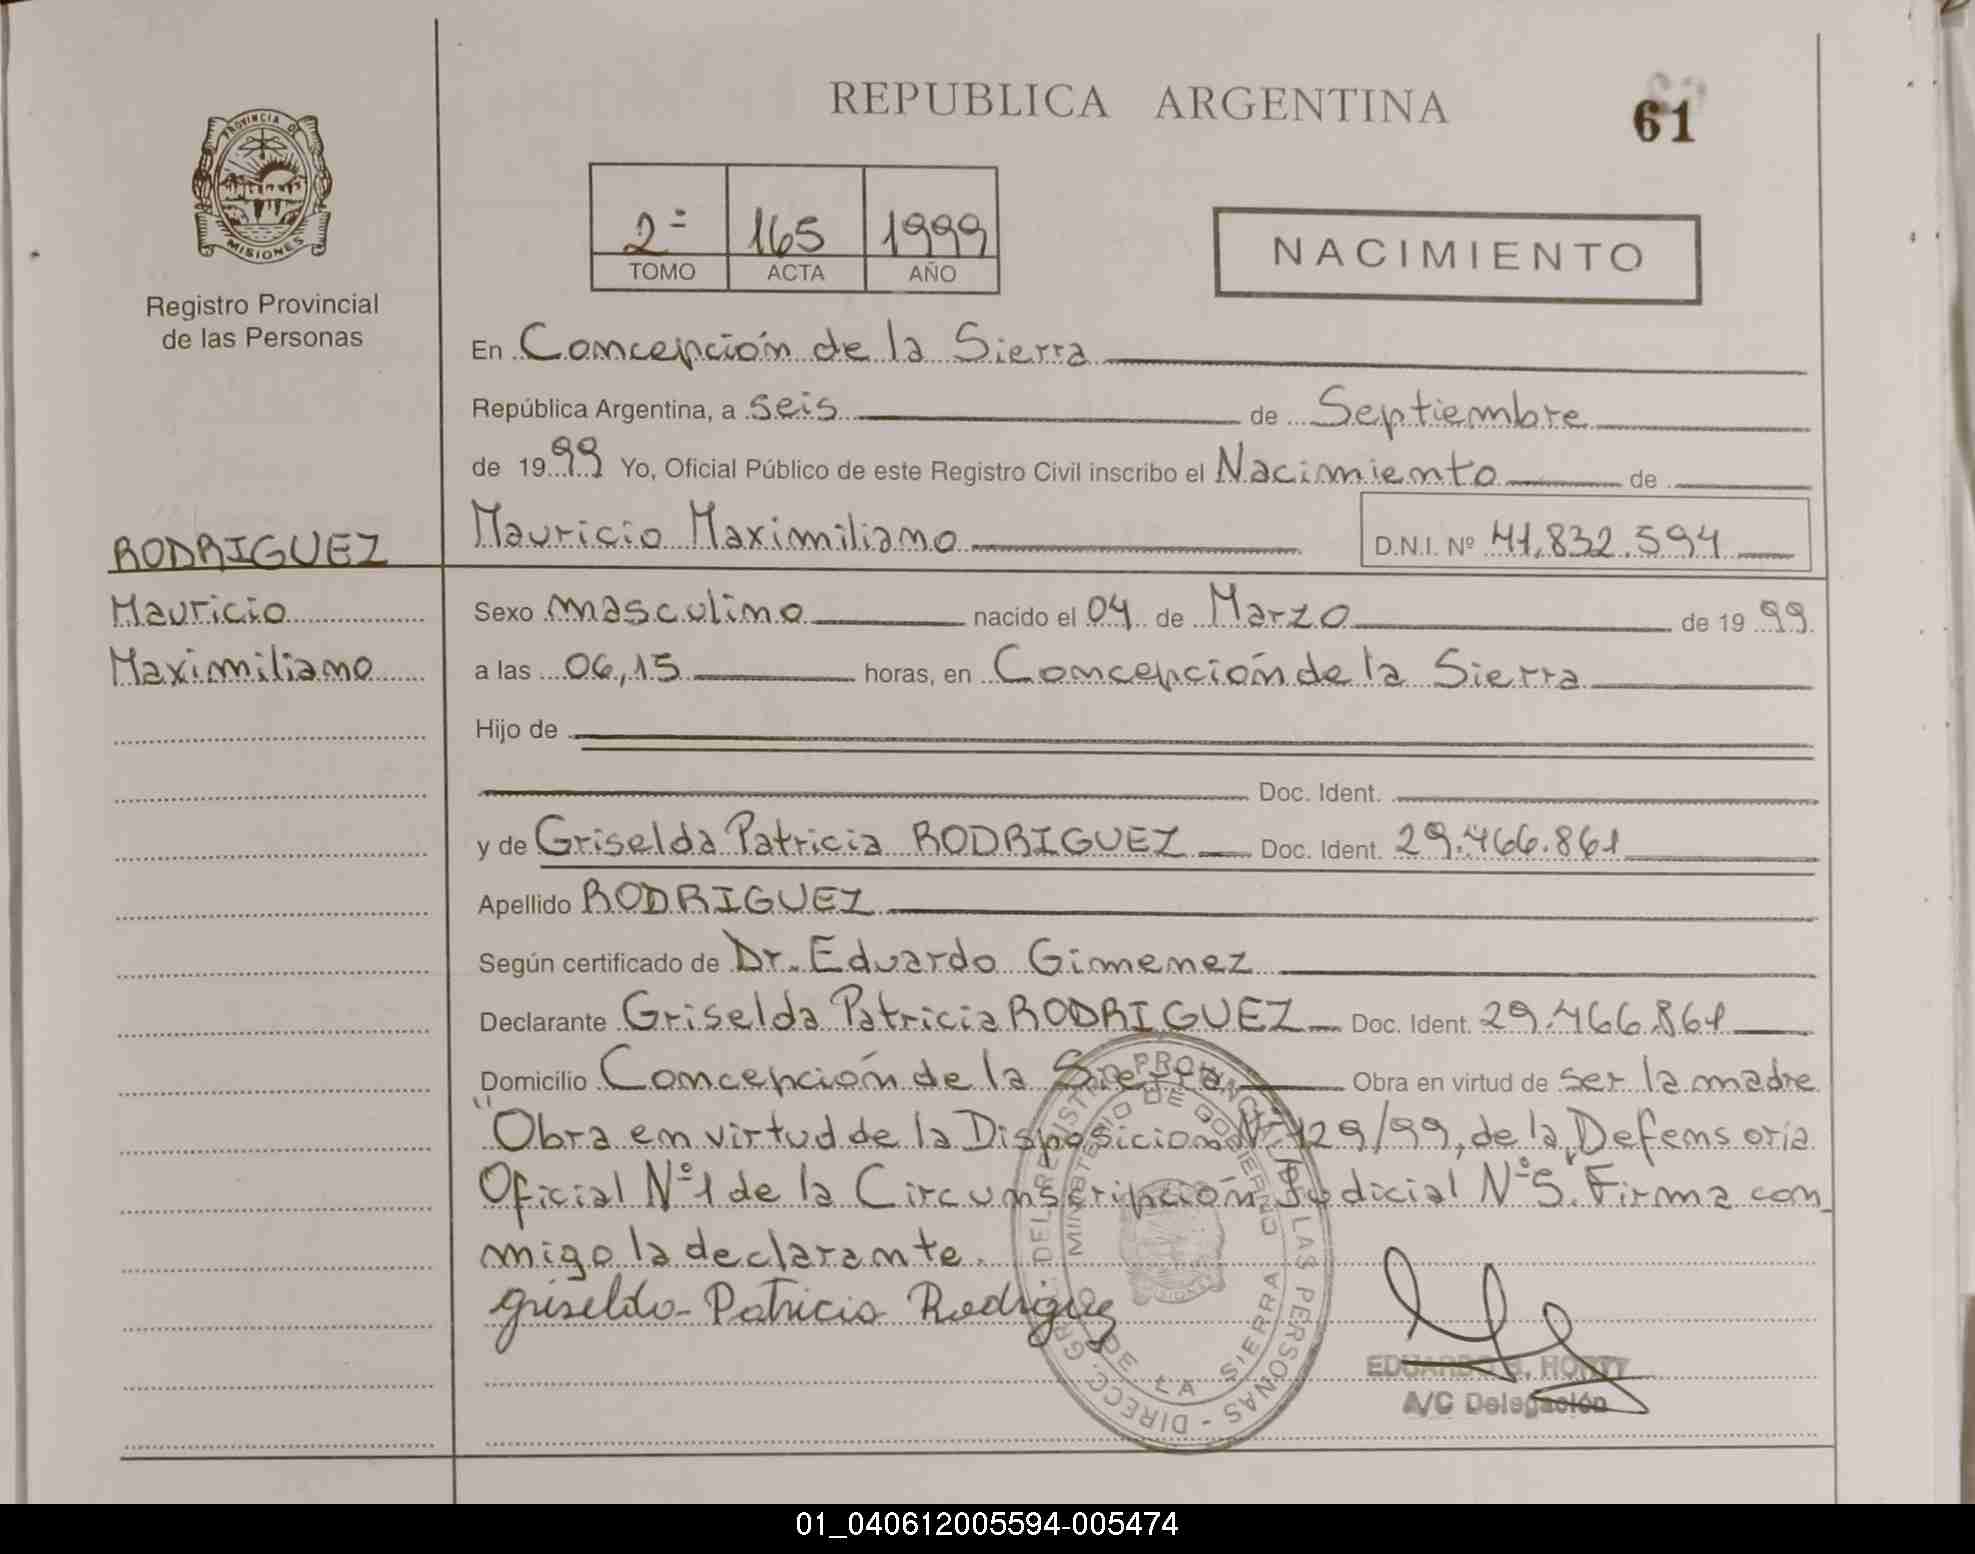 REPUBLICA ARGENTINA
61
PROVINCIA DE
MISIONES
Registro Provincial
de las Personas
2º 165 1999
TOMO ACTA AÑO
NACIMIENTO
En Concepción de la Sierra
República Argentina, a seis de Septiembre
de 1999 Yo, Oficial Público de este Registro Civil inscribo el Nacimiento de
Mauricio Maximiliano D.N.I. Nº 41.832.594
RODRIGUEZ
Mauricio
Maximiliano
Sexo masculino nacido el 04 de Marzo de 1999
a las 06,15 horas, en Concepción de la Sierra
Hijo de
Doc. Ident.
y de Griselda Patricia RODRIGUEZ Doc. Ident. 29.466.861
Apellido RODRIGUEZ
Según certificado de Dr. Eduardo Gimenez
Declarante Griselda Patricia RODRIGUEZ Doc. Ident. 29.466.861
Domicilio Concepción de la Sierra Obra en virtud de ser la madre
"Obra en virtud de la Disposicion Nº 129/99, de la Defensoria
Oficial Nº 1 de la Circunscripción Judicial Nº 5". Firma con_
migo la declarante.
Griselda Patricia Rodriguez
DIRECC. GRAL. DEL REGISTRO PROVINCIAL DE LAS PERSONAS
MINISTERIO DE GOBIERNO
DE LA SIERRA
EDUARDO
A/C Delegación
01_040612005594-005474